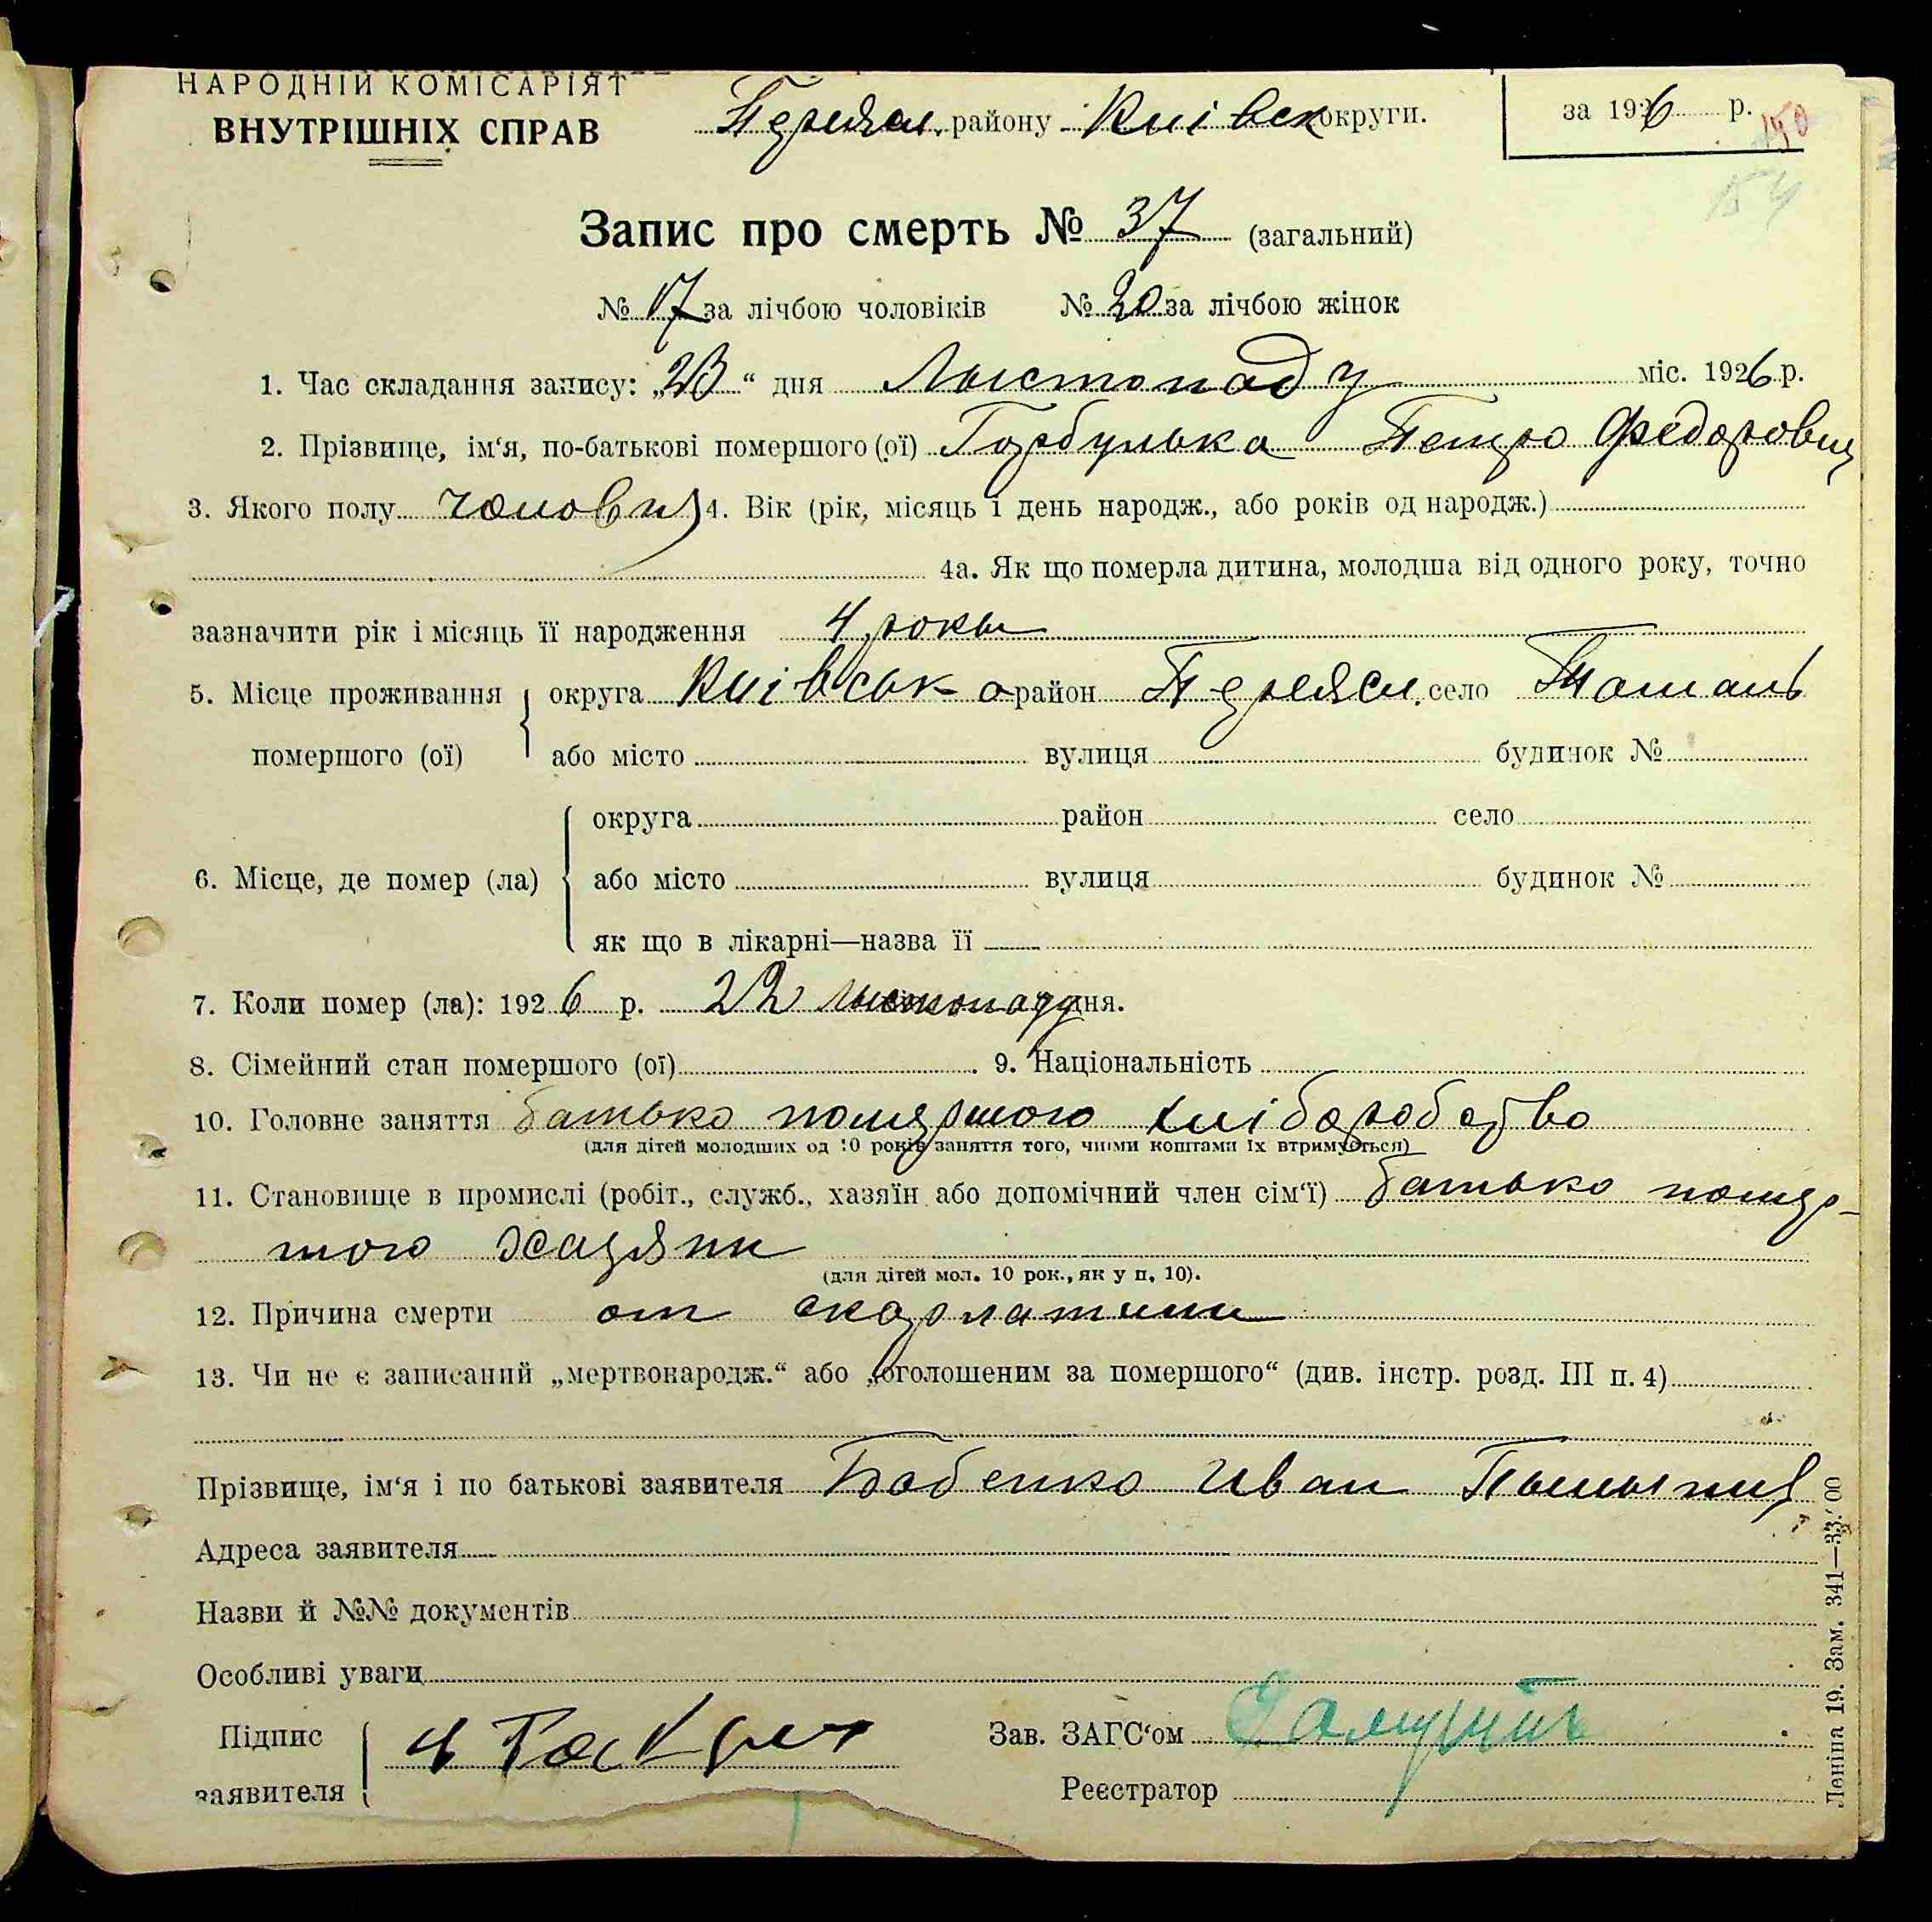 НАРОДНІЙ КОМІСАРІЯТ
ВНУТРІШНІХ СПРАВ
Переясл. району Київськ округи.
за 1926 р.
150
154
Запис про смерть № 37 (загальний)
№ 17 за лічбою чоловіків № 20 за лічбою жінок
1. Час складання запису: „23“ дня Листопаду міс. 1926 р.
2. Прізвище, ім‘я, по-батькові помершого (ої) Горбулька Петро Федорович
3. Якого полу чолови 4. Вік (рік, місяць і день народж., або років од народж.)
4а. Як що померла дитина, молодша від одного року, точно
зазначити рік і місяць її народження 4 рокы
5. Місце проживання округа Київськ а район Переясл. село Ташань
помершого (ої) або місто вулиця будинок №
округа район село
6. Місце, де помер (ла) або місто вулиця будинок №
як що в лікарні—назва її
7. Коли помер (ла): 1926 р. 22 листопаду дня.
8. Сімейний стан помершого (ої) 9. Національність
10. Головне заняття батько помершого хліборобство
(для дітей молодших од 10 років заняття того, чиїми коштами їх втримується)
11. Становище в промислі (робіт., служб., хазяїн або допомічний член сім‘ї) батько помер-
шого хазяин
(для дітей мол. 10 рок., як у п. 10).
12. Причина смерти от скарлатини
13. Чи не є записаний „мертвонародж.“ або „оголошеним за помершого“ (див. інстр. розд. III п. 4)
Прізвище, ім‘я і по батькові заявителя Бабенко Иван
Адреса заявителя
Назви й №№ документів
Особливі уваги
Підпис
заявителя
Зав. ЗАГС‘ом
Реєстратор
Леніна 19. Зам. 341—33.